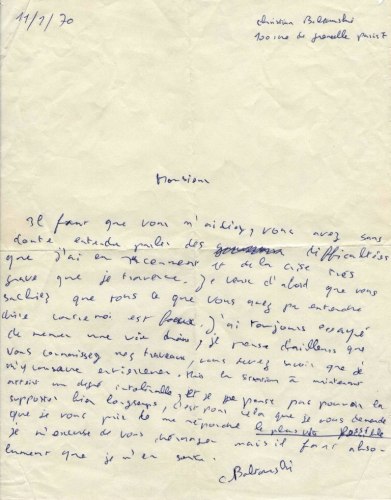 11/1/70
Christian Boltanski
100 rue de grenelle paris 7
Monsieur
Il faut que vous m'aidiez, vous avez sans
doute entendu parler des difficultées
que j'ai eu récemment et de la crise très
grave que je traverse. Je veux d'abord que vous
sachiez que tous ce que vous avez pu entendre
dire contre moi est faux. j'ai toujours essayé
de mener une vie droite, je pense d'ailleurs que
vous connaissez mes travaux, vous savez sans que je
m'y consacre entièrement. Mais la situation a maintenant
atteint un degré intolérable, et je ne pense pas pouvoir la
supporter bien longtemps, c'est pour cela que je vous demande
que je vous prie de me répondre le plus vite possible
je m'excuse de vous déranger mais il faut abso-
lument que je m'en sorte.
C. Boltanski